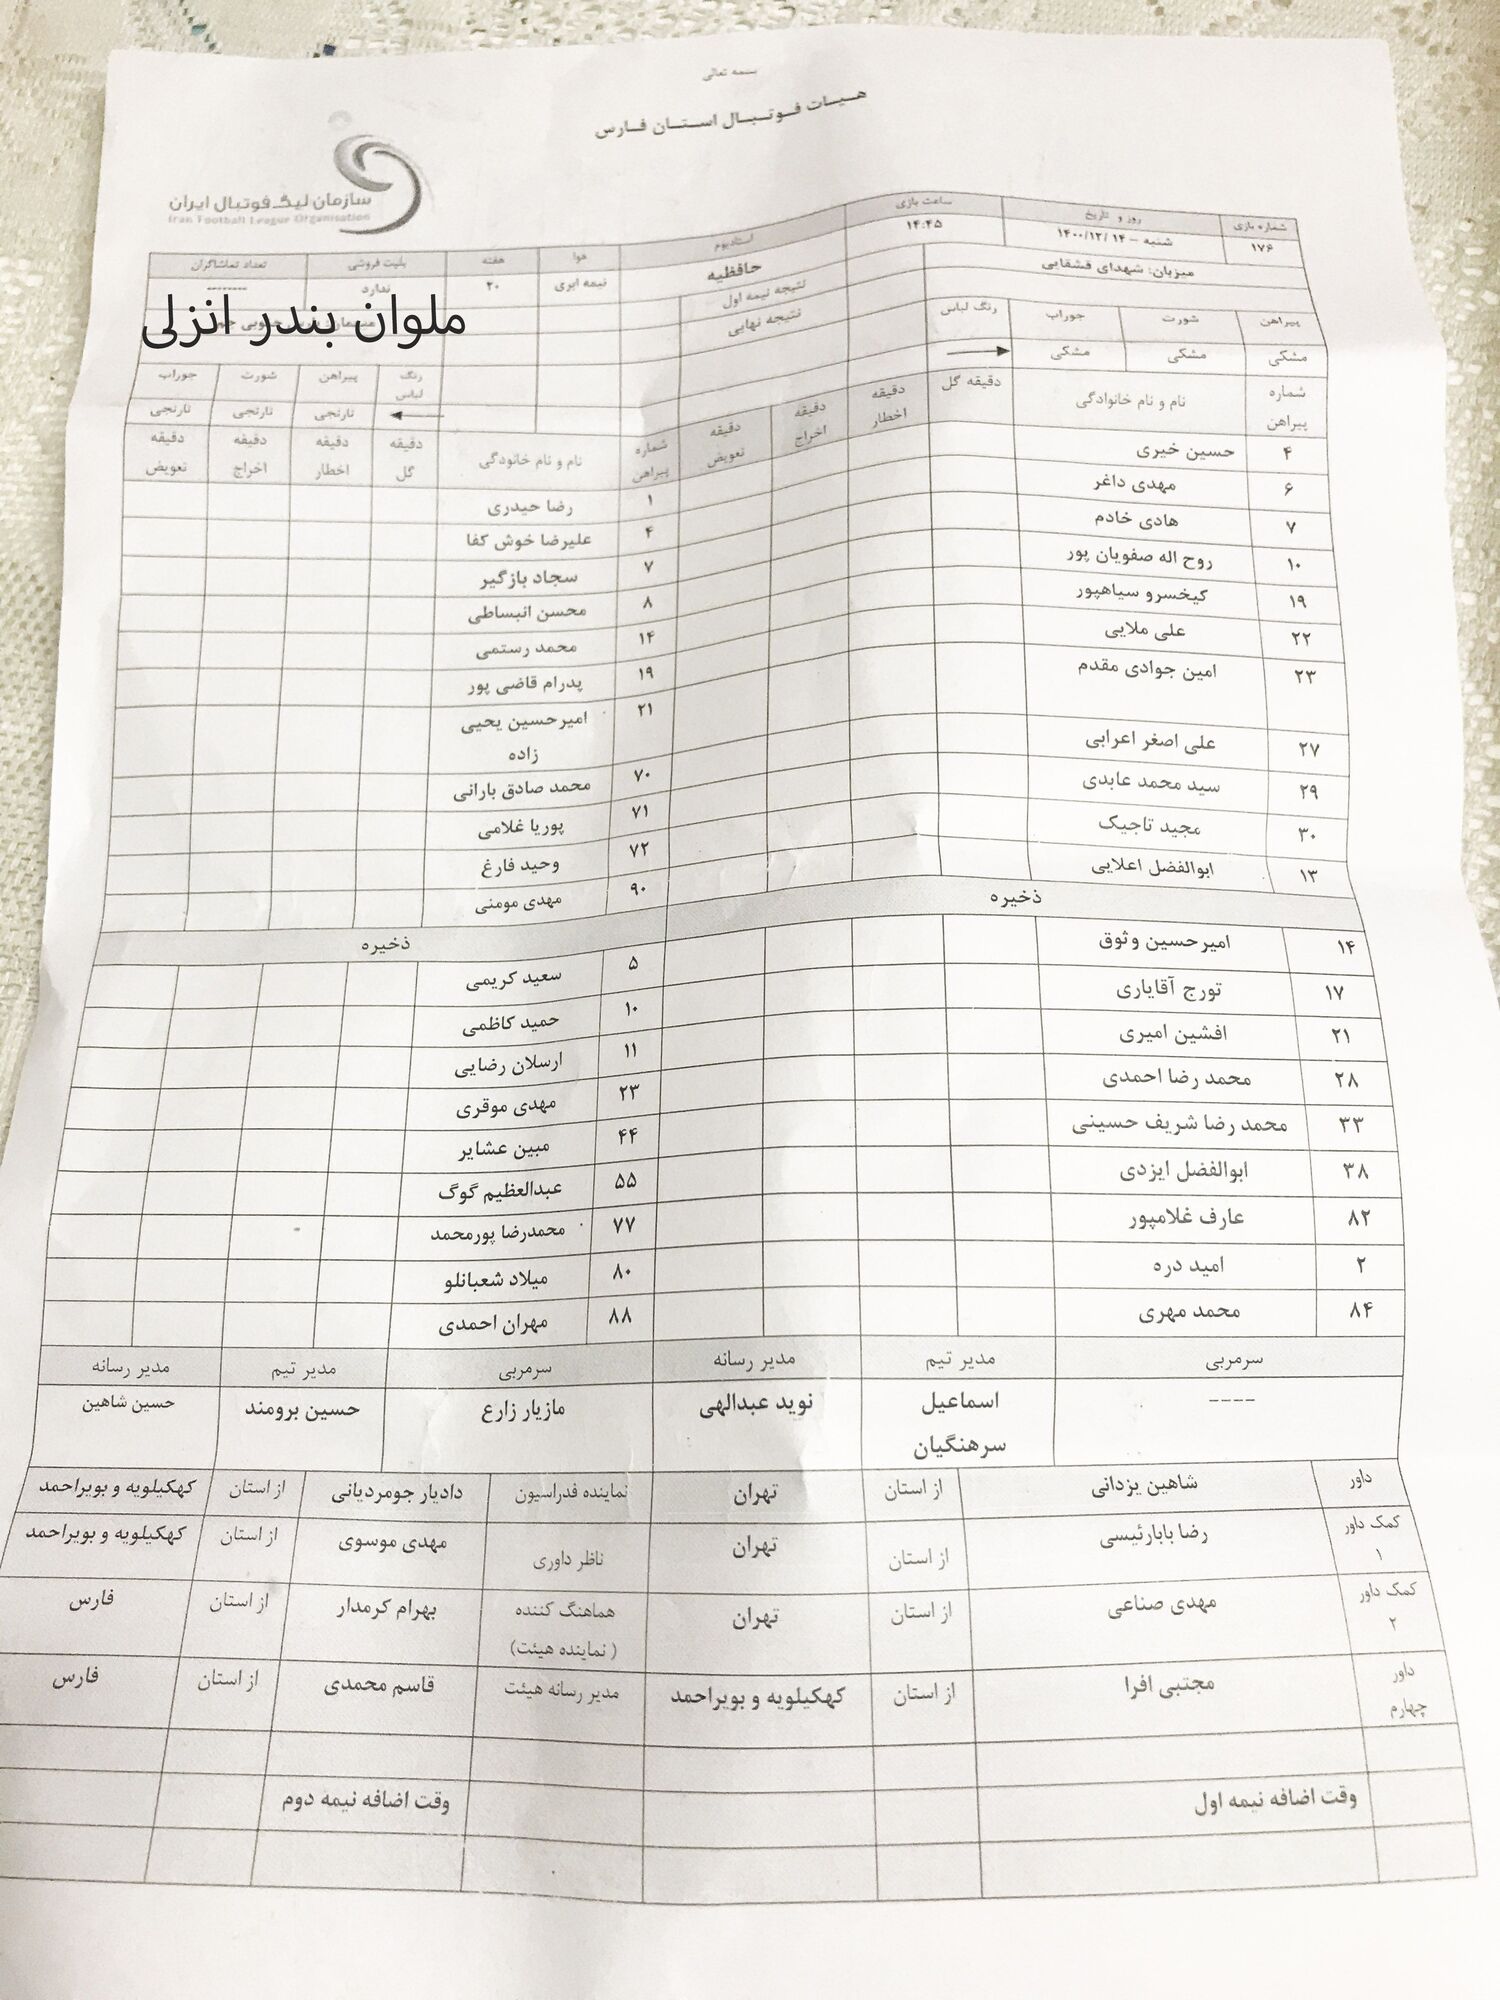 بسمه تعالی
هیات فوتبال استان فارس
سازمان لیگ فوتبال ایران
Iran Football League Organisation
شماره بازی روز و تاریخ ساعت بازی استادیوم هوا هفته بلیت فروشی تعداد تماشاگران
۱۷۶ شنبه – ۱۴ /۱۴۰۰/۱۲ ۱۴:۴۵ حافظیه نیمه ابری ۲۰ ندارد --------
میزبان: شهدای قشقایی نتیجه نیمه اول
ملوان بندر انزلی
نتیجه نهایی
پیراهن شورت جوراب رنگ لباس
مشکی مشکی مشکی
رنگ لباس پیراهن شورت جوراب
نارنجی نارنجی نارنجی
شماره پیراهن نام و نام خانوادگی دقیقه گل دقیقه اخطار دقیقه اخراج دقیقه تعویض
شماره پیراهن نام و نام خانودگی دقیقه گل دقیقه اخطار دقیقه اخراج دقیقه تعویض
۴ حسین خیری ۱ رضا حیدری
۶ مهدی داغر ۴ علیرضا خوش کفا
۷ هادی خادم ۷ سجاد بازگیر
۱۰ روح اله صفویان پور ۸ محسن انبساطی
۱۹ کیخسرو سیاهپور ۱۴ محمد رستمی
۲۲ علی ملایی ۱۹ پدرام قاضی پور
۲۳ امین جوادی مقدم ۲۱ امیرحسین یحیی زاده
۲۷ علی اصغر اعرابی ۷۰ محمد صادق بارانی
۲۹ سید محمد عابدی ۷۱ پوریا غلامی
۳۰ مجید تاجیک ۷۲ وحید فارغ
۱۳ ابوالفضل اعلایی ۹۰ مهدی مومنی
ذخیره ذخیره
۱۴ امیرحسین وثوق ۵ سعید کریمی
۱۷ تورج آقایاری ۱۰ حمید کاظمی
۲۱ افشین امیری ۱۱ ارسلان رضایی
۲۸ محمد رضا احمدی ۲۳ مهدی موقری
۳۳ محمد رضا شریف حسینی ۴۴ مبین عشایر
۳۸ ابوالفضل ایزدی ۵۵ عبدالعظیم گوگ
۸۲ عارف غلامپور ۷۷ محمدرضا پورمحمد
۲ امید دره ۸۰ میلاد شعبانلو
۸۴ محمد مهری ۸۸ مهران احمدی
سرمربی مدیر تیم مدیر رسانه سرمربی مدیر تیم مدیر رسانه
---- اسماعیل سرهنگیان نوید عبدالهی مازیار زارع حسین برومند حسین شاهین
داور شاهین یزدانی از استان تهران نماینده فدراسیون دادیار جومردیانی از استان کهکیلویه و بویراحمد
کمک داور ۱ رضا بابارئیسی از استان تهران ناظر داوری مهدی موسوی از استان کهکیلویه و بویراحمد
کمک داور ۲ مهدی صناعی از استان تهران هماهنگ کننده ( نماینده هیئت) بهرام کرمدار از استان فارس
داور چهارم مجتبی افرا از استان کهکیلویه و بویراحمد مدیر رسانه هیئت قاسم محمدی از استان فارس
وقت اضافه نیمه اول وقت اضافه نیمه دوم